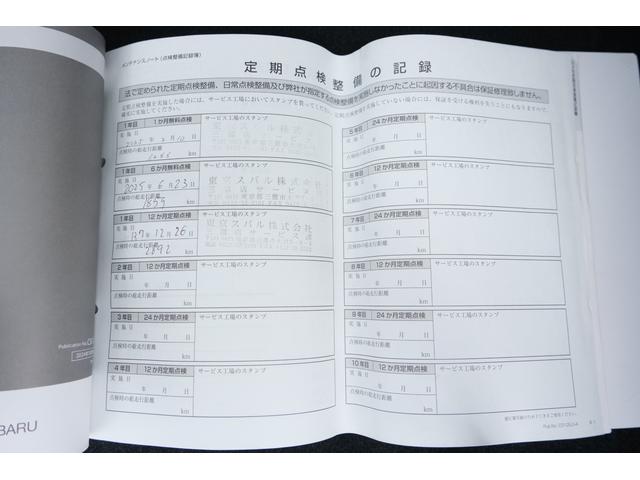 メンテナンスノート(点検整備記録簿)
定期点検整備の記録
法で定められた定期点検整備、日常点検整備及び弊社が指定する点検整備を実施しなかったことに起因する不具合は保証修理致しません。
1年目 1か月無料点検
サービス工場のスタンプ
実施日
年 月 日
点検時の総走行距離
km
1年目 6か月無料点検
サービス工場のスタンプ
東京スバル株式会社
実施日
2025年6月23日
点検時の総走行距離
1899 km
1年目 12か月定期点検
サービス工場のスタンプ
東京スバル株式会社
実施日
年12月26日
点検時の総走行距離
2892 km
2年目 12か月定期点検
サービス工場のスタンプ
実施日
年 月 日
点検時の総走行距離
km
3年目 24か月定期点検
サービス工場のスタンプ
実施日
年 月 日
点検時の総走行距離
km
4年目 12か月定期点検
サービス工場のスタンプ
実施日
年 月 日
点検時の総走行距離
km
5年目 24か月定期点検
サービス工場のスタンプ
実施日
年 月 日
点検時の総走行距離
km
6年目 12か月定期点検
サービス工場のスタンプ
実施日
年 月 日
点検時の総走行距離
km
7年目 24か月定期点検
サービス工場のスタンプ
実施日
年 月 日
点検時の総走行距離
km
8年目 12か月定期点検
サービス工場のスタンプ
実施日
年 月 日
点検時の総走行距離
km
9年目 24か月定期点検
サービス工場のスタンプ
実施日
年 月 日
点検時の総走行距離
km
10年目 12か月定期点検
サービス工場のスタンプ
実施日
年 月 日
点検時の総走行距離
km
BARU